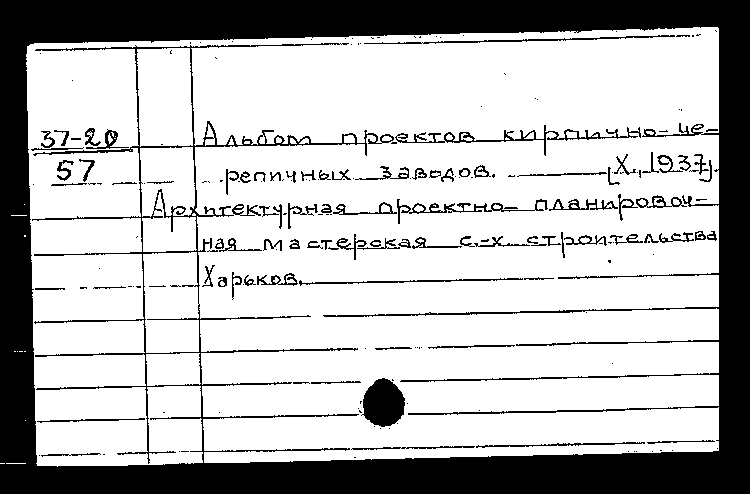 37-20
57
Альбом проектов кирпично-че-
репичных заводов. [Х., 1937].
Архитектурная проектно-планировоч-
ная мастерская с.-х. строительства
Харьков.